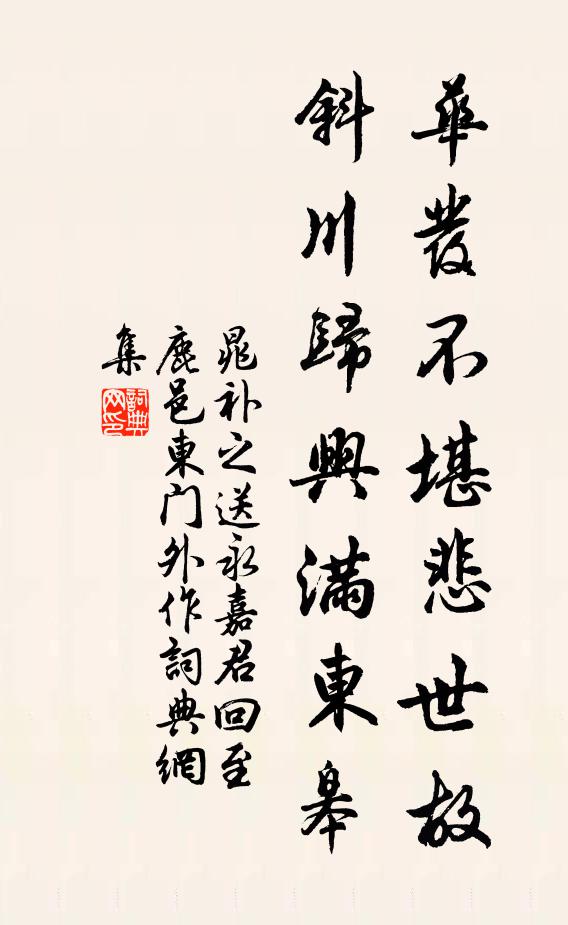 華發不堪悲世故
斜川歸興滿東皋
晁补之送永嘉君回至
鹿邑東門外作詞典網
集
詞典
网印